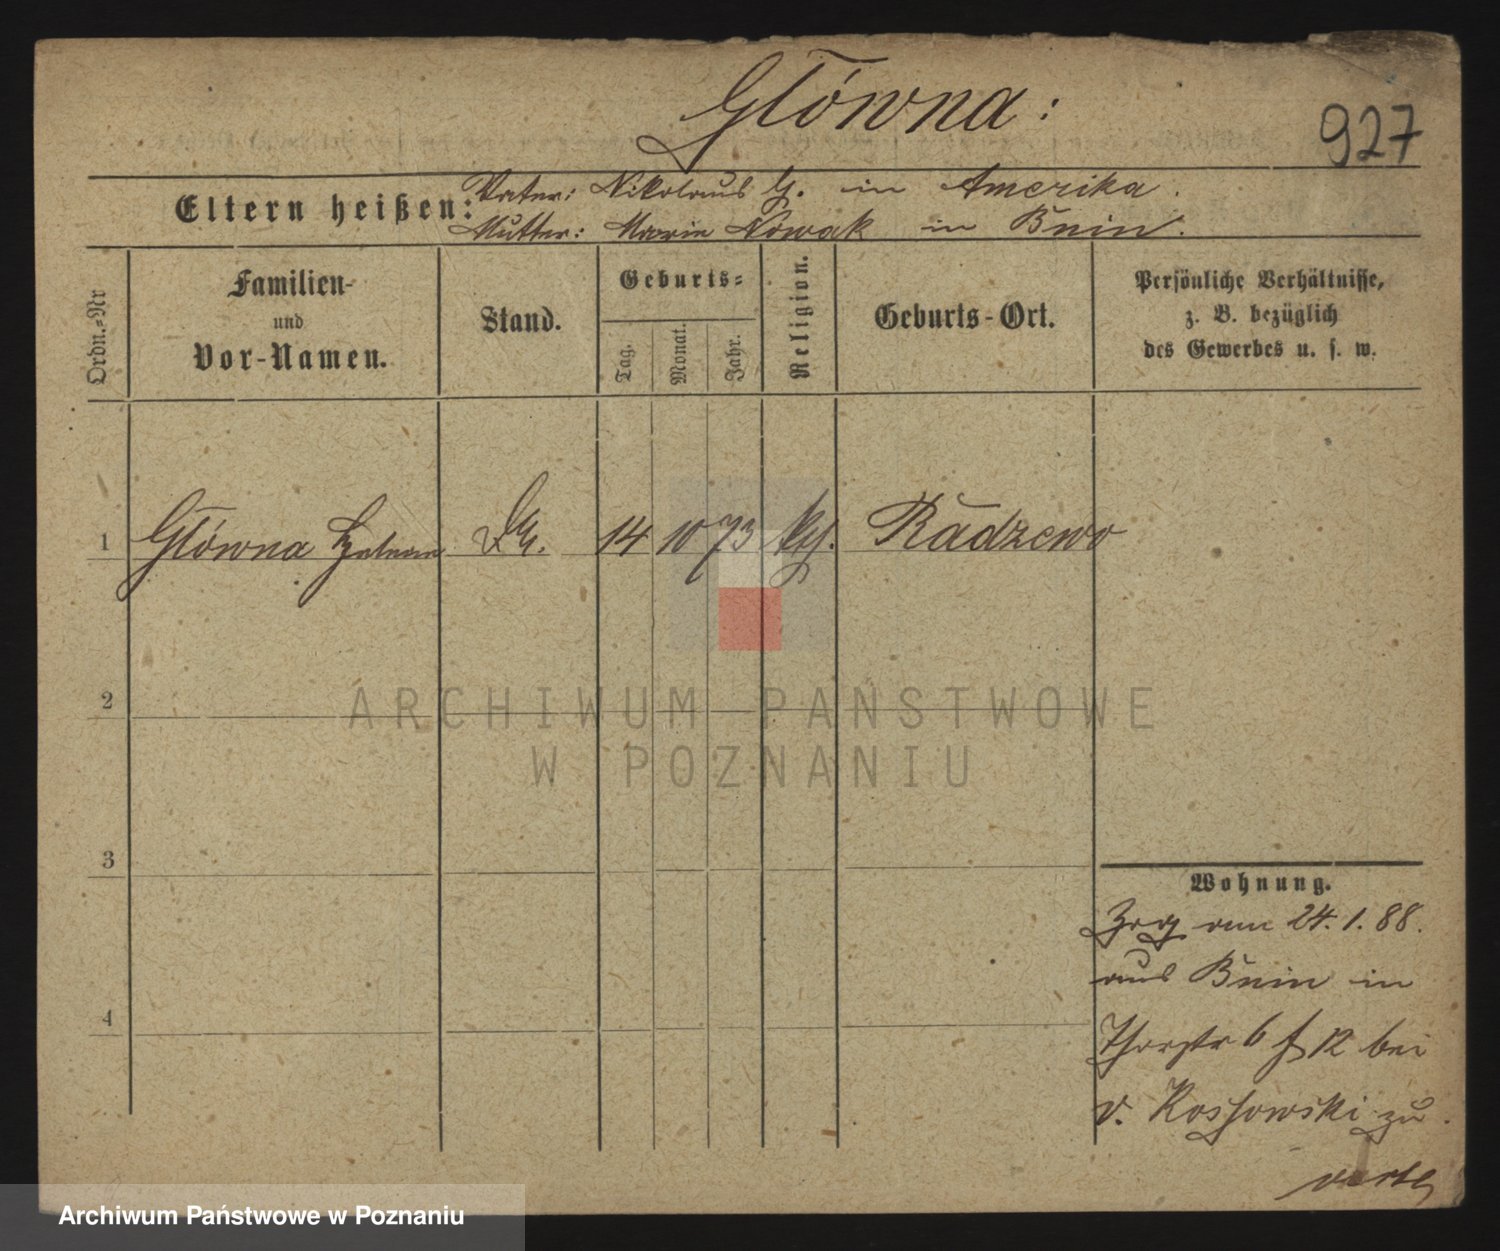 Główna:
927
Eltern heißen:
Vater: Nikolaus G. in Amerika.
Mutter: Marie Nowak in Bnin.
Ordn.-Nr
Familien-
und
Vor-Namen.
Stand.
Geburts-
Tag.
Monat.
Jahr.
Religion.
Geburts-Ort.
Persönliche Verhältnisse,
z. B. bezüglich
des Gewerbes u. s. w.
1 Główna 14 10 73 Radzewo
2
3
4
ARCHIWUM PAŃSTWOWE
W POZNANIU
Wohnung.
Zog am 24.1.88.
aus Bnin in
6 12 bei
v. Kossowski zu
Archiwum Państwowe w Poznaniu